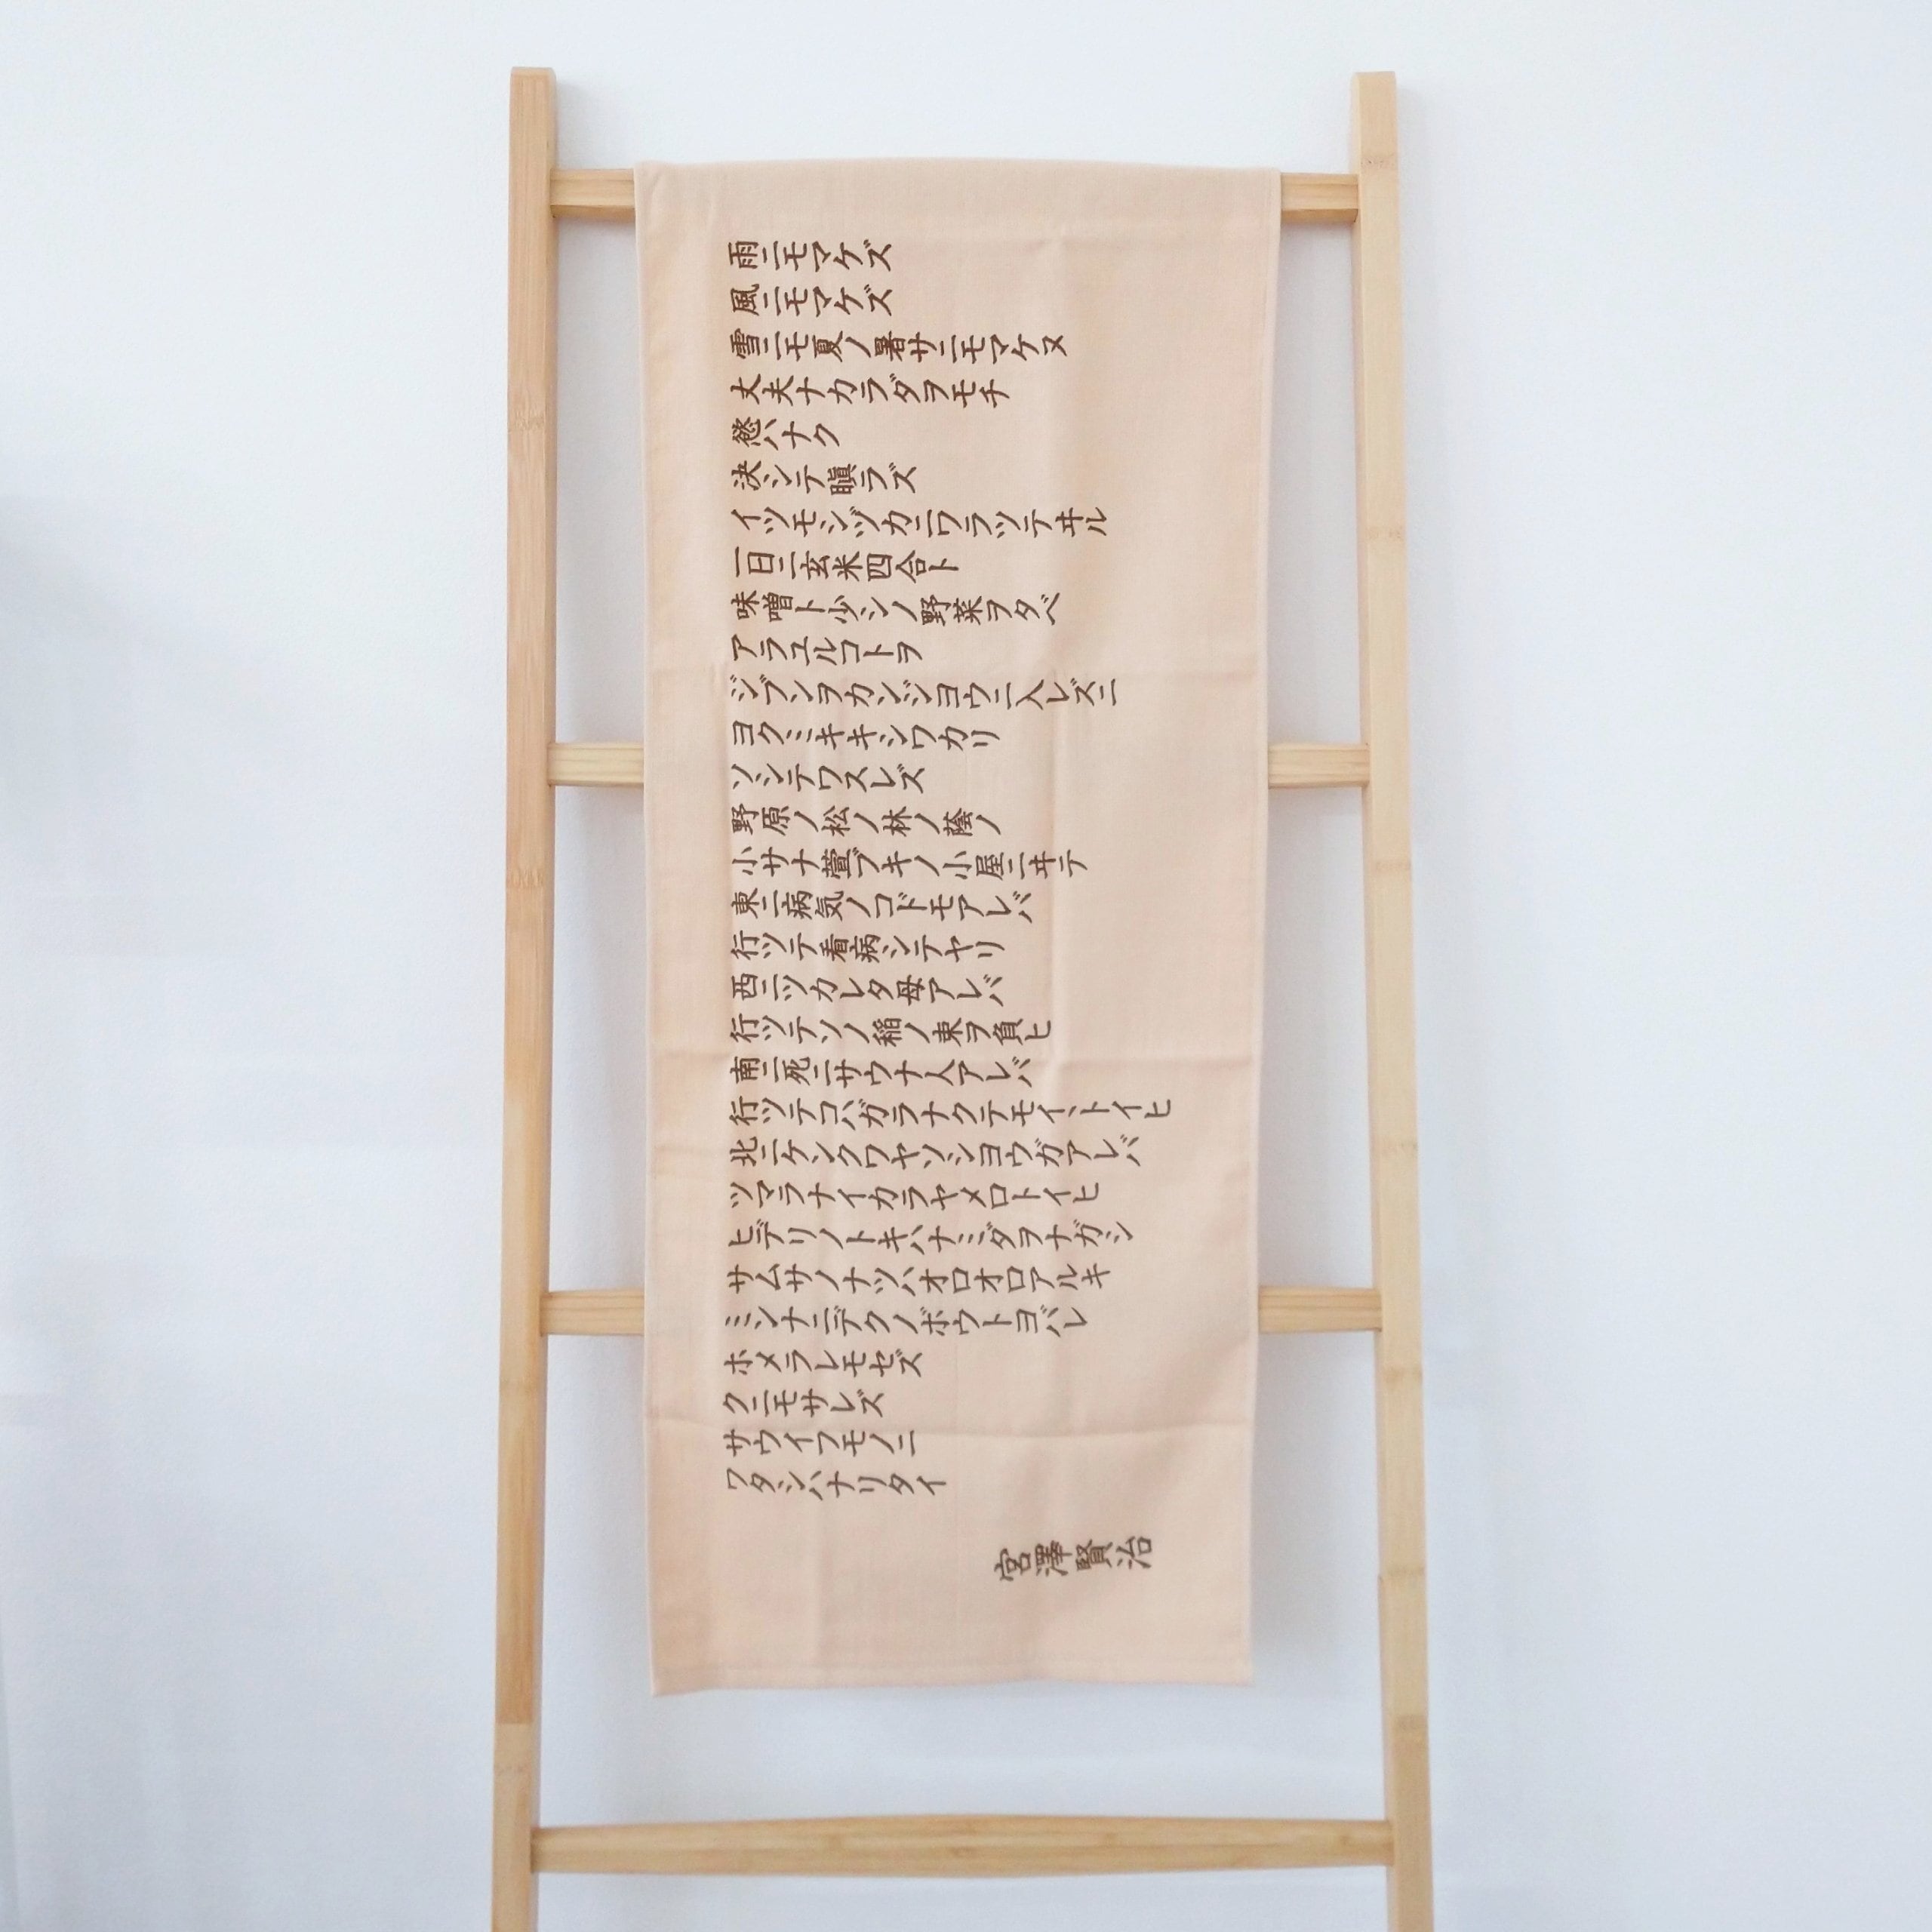 雨ニモマケズ
風ニモマケズ
雪ニモ夏ノ暑サニモマケヌ
丈夫ナカラダヲモチ
慾ハナク
決シテ瞋ラズ
イツモシヅカニワラツテヰル
一日ニ玄米四合ト
味噌ト少シノ野菜ヲタベ
アラユルコトヲ
ジブンヲカンジヨウニ入レズニ
ヨクミキキシワカリ
ソシテワスレズ
野原ノ松ノ林ノ蔭ノ
小サナ萱ブキノ小屋ニヰテ
東ニ病気ノコドモアレバ
行ツテ看病シテヤリ
西ニツカレタ母アレバ
行ツテソノ稲ノ束ヲ負ヒ
南ニ死ニサウナ人アレバ
行ツテコハガラナクテモイヽトイヒ
北ニケンクワヤソシヨウガアレバ
ツマラナイカラヤメロトイヒ
ヒデリノトキハナミダヲナガシ
サムサノナツハオロオロアルキ
ミンナニデクノボウトヨバレ
ホメラレモセズ
クニモサレズ
サウイフモノニ
ワタシハナリタイ
宮澤賢治